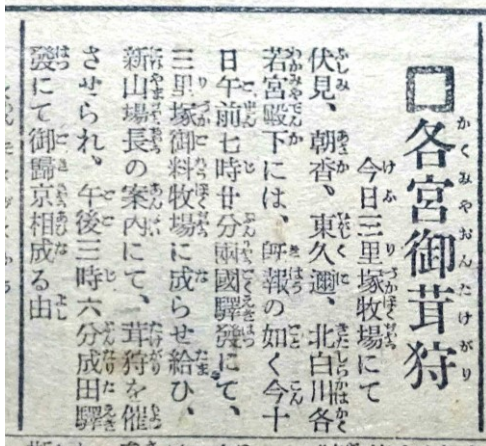 □各宮御茸狩
今日三里塚牧場にて
伏見、朝香、東久邇、北白川各
若宮殿下には、既報の如く今十
日午前七時廿分兩國驛發にて、
三里塚御料牧場に成らせ給ひ、
新山場長の案内にて、茸狩を催
させられ、午後三時六分成田驛
發にて御歸京相成る由